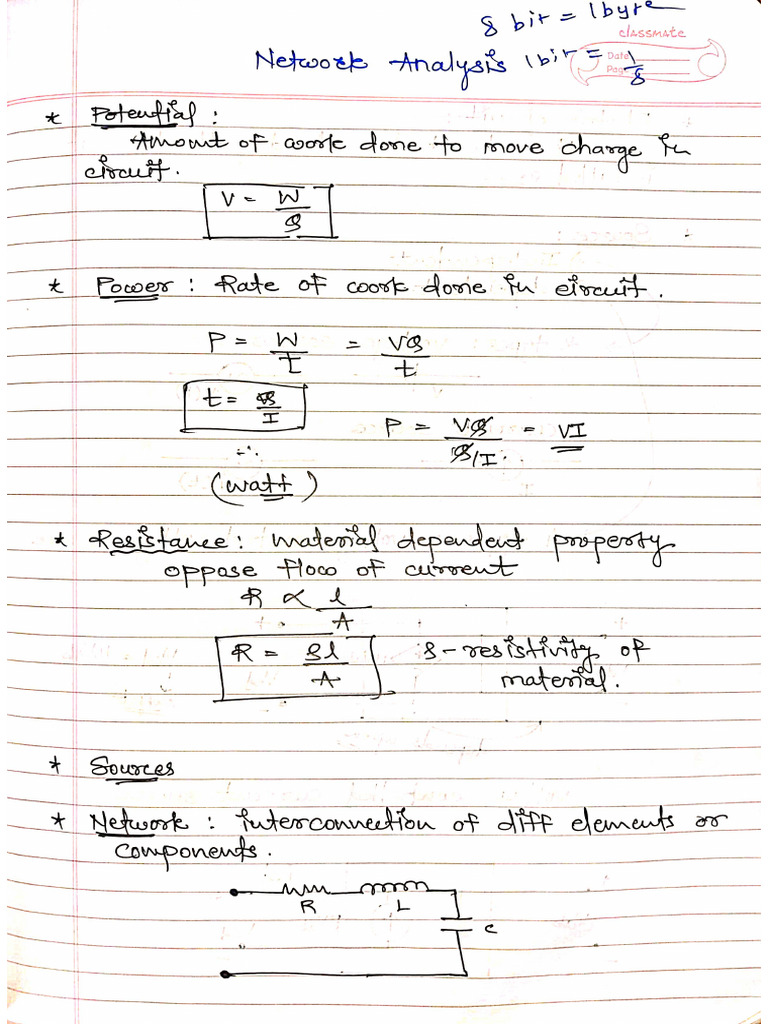 8 bit = 1byte
classmate
Network Analysis 1bit = 1/8
Date
Page
* Potential :
Amount of work done to move charge in
circuit.
V = W/Q
* Power : Rate of work done in circuit.
P = W/T = VQ/t
t = Q/I
P = VQ/Q/I = VI
∴
(watt)
* Resistance : material dependent property
oppose flow of current
R ∝ l/A
R = ρl/A ρ - resistivity of
material.
* Sources
* Network : interconnection of diff elements or
components.
R L
C